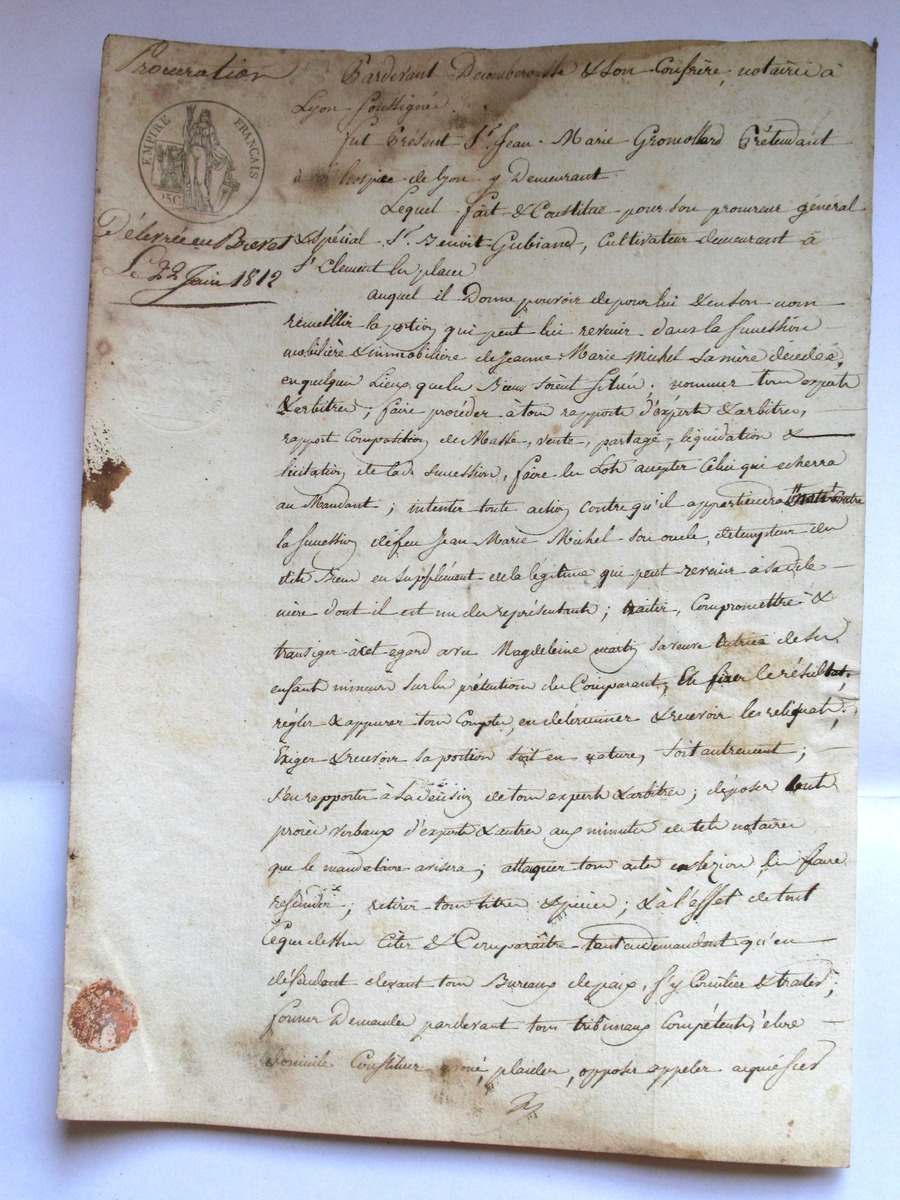 Procuration
EMPIRE FRANÇAIS
25C
Délivrée en Brevet
Le 22 Juin 1812
Pardevant Decomberousse & Son Confrère, notaires à
Lyon Soussignés.
fut Présent Sr. Jean-Marie Gromollard Prétendant
à l'hospice de Lyon y Demeurant
Lequel fait & Constitue pour son procureur général
& spécial Sr. Benoit Gubiand, Cultivateur demeurant à
St Clement les places
auquel il Donne pouvoir de pour lui & en son nom
recueillir la portion qui peut lui revenir dans la succession
mobilière & immobilière de Jeanne Marie Michel sa mère décédée,
en quelques Lieux que les Biens soient Situés; nommer tous experts
& arbitres; faire procéder à tous rapports d'experts & arbitres,
rapport Composition de Masse, vente, partage, liquidation &
licitation de lad. succession, faire les Lots accepter Celui qui echerra
au Mandant; intenter toute action contre qu'il appartiendra contre
la succession de feu Jean Marie Michel son oncle, detempteur des
dits Biens en supplément de la legitime qui peut revenir à sa dite
mère dont il est un des représentants; traiter, Compromettre &
transiger à cet egard avec Magdeleine martin sa veuve tutrice de ses
enfants mineurs sur les prétentions du Comparant, En fixer le résultat,
régler & appurer tous Comptes, en déterminer & recevoir les reliquats;
Exiger & recevoir sa portion soit en nature, soit autrement;
s'en rapporter à la décision de tous experts & arbitres; déposer tout
procès verbaux d'experts & autres aux minutes de tels notaires
que le mandataire avisera; attaquer tous actes en lezion les faire
rescinder; retirer tous titres & pièces; & à l'effet de tout
Ce que dessus Citer & Comparaître tant en demandant qu'en
défendant devant tous Bureaux de paix, s'y Concilier & traiter;
former Demandes pardevant tous tribunaux Compétents, élire
domicile Constituer avoué, plaider, opposer appeler acquiescer